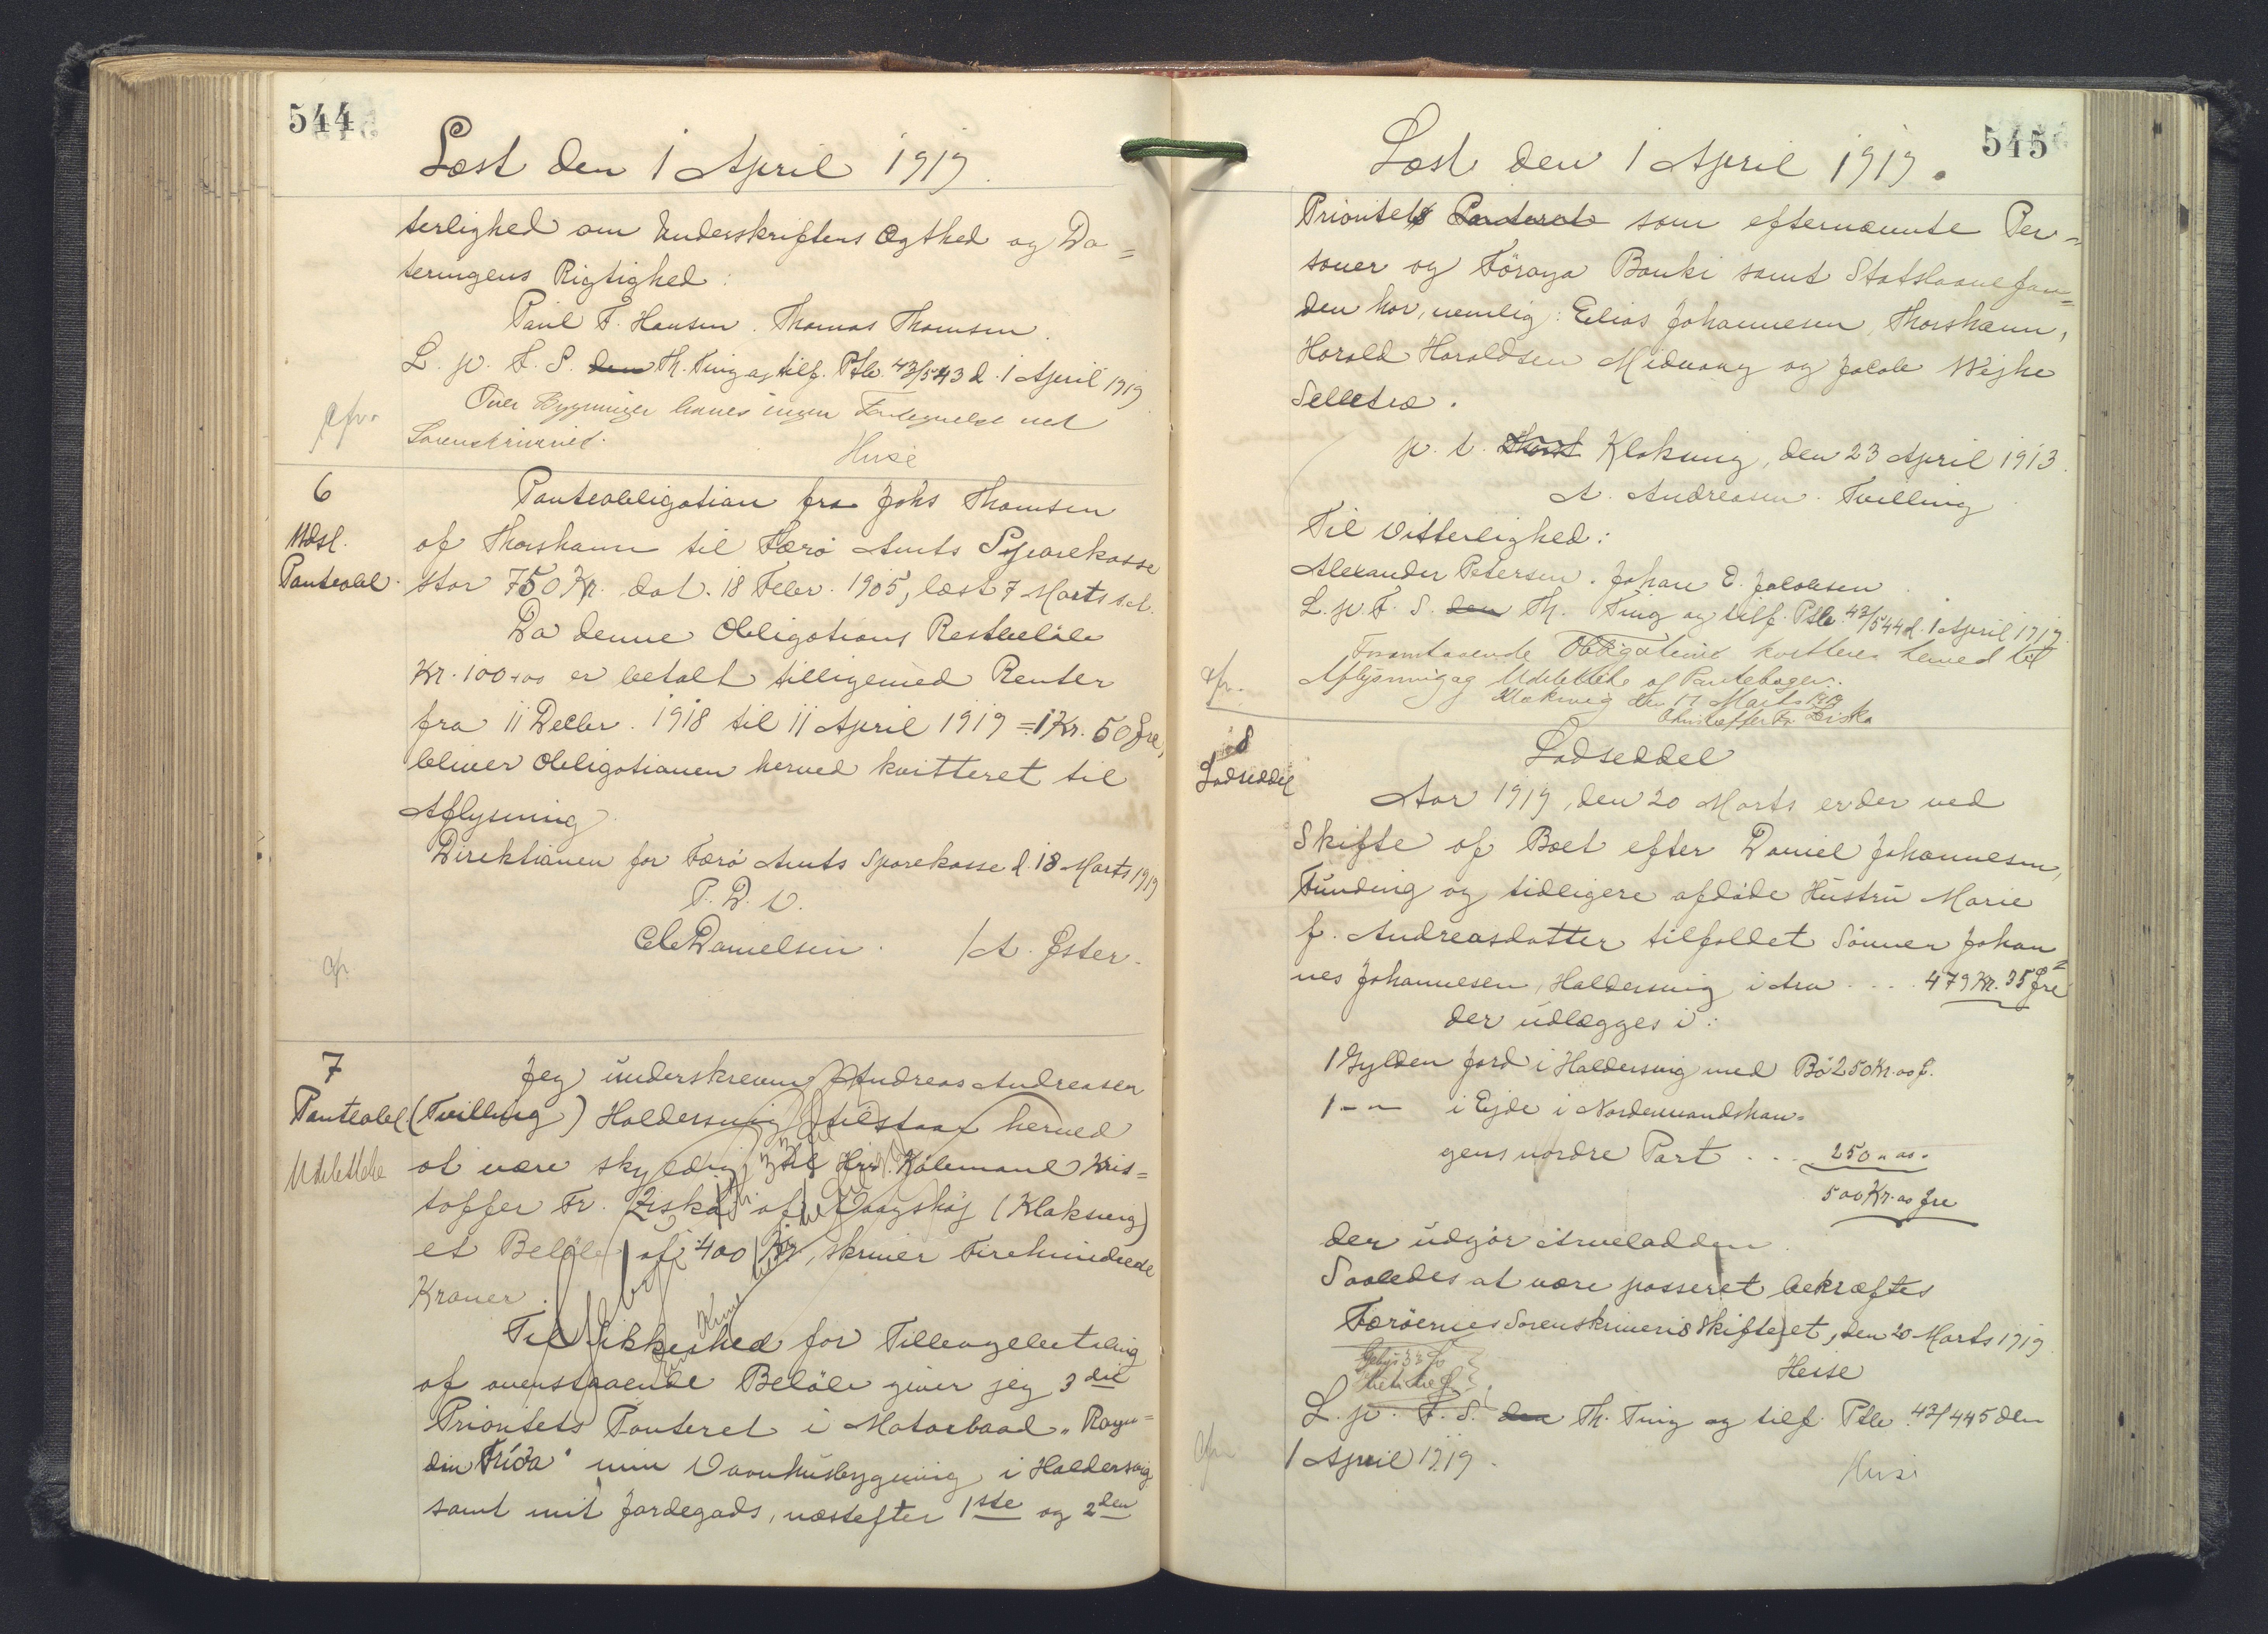 544
Læst den 1 April 1919.
terlighed om Underskriftens Ægthed og Da=
teringens Rigtighed:
Paul F. Hansen. Thomas Thomsen.
L. p. F. S. den Th. Ting og tilf. Ptb. 43/543 d. 1 April 1919
Over Bygninger haves ingen Fortegnelse ved
Sorenskriveriet.
afsr.
6
Udsl.
Panteobl.
Panteobligation fra Johs Thomsen
af Thorshavn til Færø Amts Sparekasse
stor 750 Kr. dat. 18 Febr. 1905, læst 7 Marts s.A.
Da denne Obligations Restbeløb
Kr. 100,00 er betalt tilligemed Renter
fra 11 Decbr. 1918 til 11 April 1919 = 1 Kr. 50 Øre,
bliver Obligationen herved kvitteret til
Aflysning
Direktionen for Færø Amts Sparekasse d. 18 Marts 1919
P. D. V.
Danielsen. /A. Øster.
afr.
7
Panteobl.
Udslettelse
Jeg underskrevne Andreas Andreasen
(Tvilling) Haldersvig tilstaar herved
at være skyldig til Hr. Købmand Kris=
toffer Fr. Ziska af Vaagshøj (Klaksvig)
et Beløb af 400 Kr, skriver Firehundrede
Kroner.
Til Sikkerhed for Tilbagebetaling
af ovenstaaende Beløb giver jeg 3die
Prioritets Panteret i Motorbaad „Royn=
din Fríða" min Vaanhusbygning i Haldersvig
samt mit Jordegods, næstefter 1ste og 2den
545
Læst den 1 April 1919.
Prioritets Panteret som efternævnte Per=
soner og Föroya Banki samt Statslaanefon=
den har, nemlig: Elias Johannesen, Thorshavn,
Harald Haraldsen Midvaag og Jakob Weihe
Selletræ.
p. t. Klaksvig, den 23 April 1913.
A. Andreasen Tvilling
Til Vitterlighed:
Alexander Petersen. Johan E. Jacobsen
L. p. F. S. den Th. Ting og tilf. Ptb. 43/544 d. 1 April 1919.
Foranstaaende Obligation kvitteres herved til
Aflysning og Udslettelse af Pantebogen.
Klaksvig den 17 Marts
Christoffer Fr Ziska
afr.
8
Lodseddel
Lodseddel
Aar 1919, den 20 Marts er der ved
Skifte af Boet efter Daniel Johannesen,
Funding og tidligere afdøde Hustru Marie
f. Andreasdatter tilfaldet Sønnen Johan=
nes Johannesen, Haldersvig i Arv ... 479 Kr. 35 Øre
der udlægges i:
1 Gylden Jord i Haldersvig med Bö 250 Kr. oo Ø.
1 - " - i Ejde i Nordenmandshau=
gens nordre Part ... 250 " oo "
500 Kr. oo Øre
der udgør Arvelodden.
Saaledes at være passeret bekræftes
Færøernes Sorenskriveris Skifteret, den 20 Marts 1919
Heise
L. p. F. S. den Th. Ting og tilf. Ptb. 43/445 den
1 April 1919.
afr